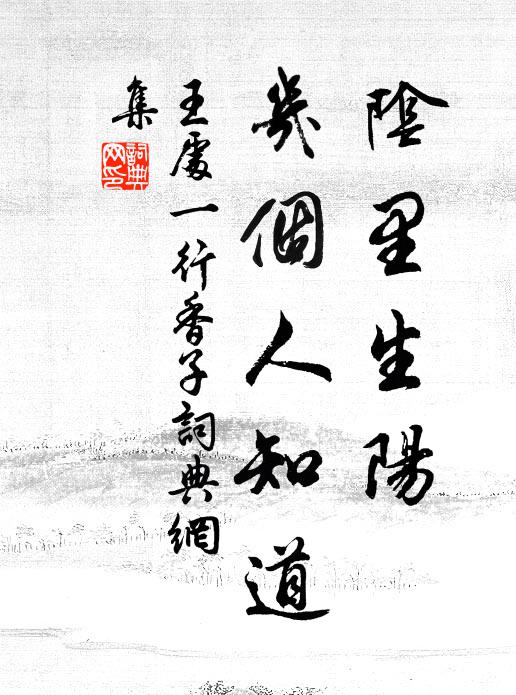 陰里生陽
幾個人知道
王處一行香子詞典網
集
詞典
网印